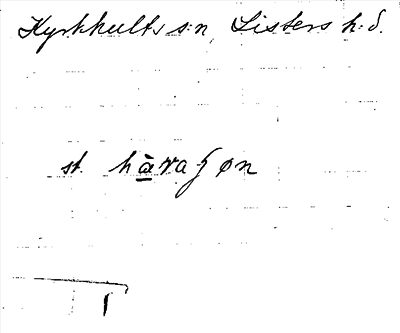 Kyrkhults s:n, Listers h:d.
st. hàraʒøn